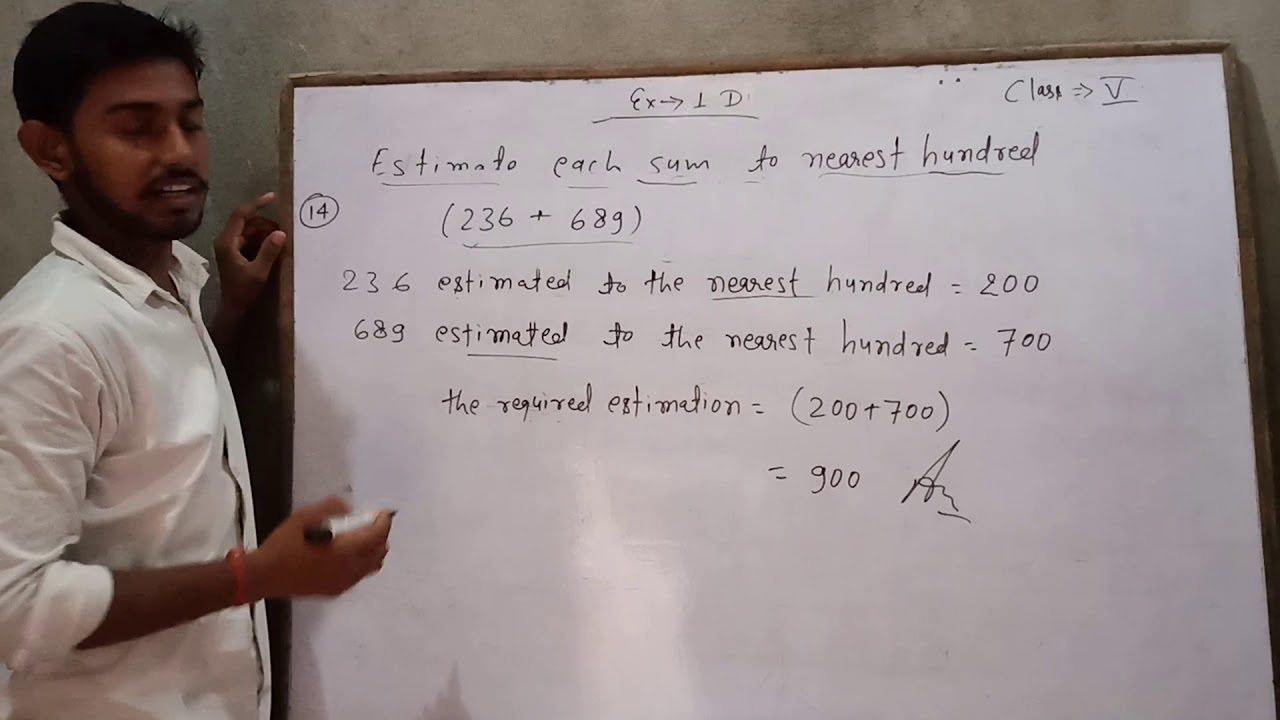 Ex→ 1 D
Class ⇒ V
Estimate each sum to nearest hundred
14 (236 + 689)
236 estimated to the nearest hundred = 200
689 estimatted to the nearest hundred = 700
the required estimation = (200+700)
= 900 An